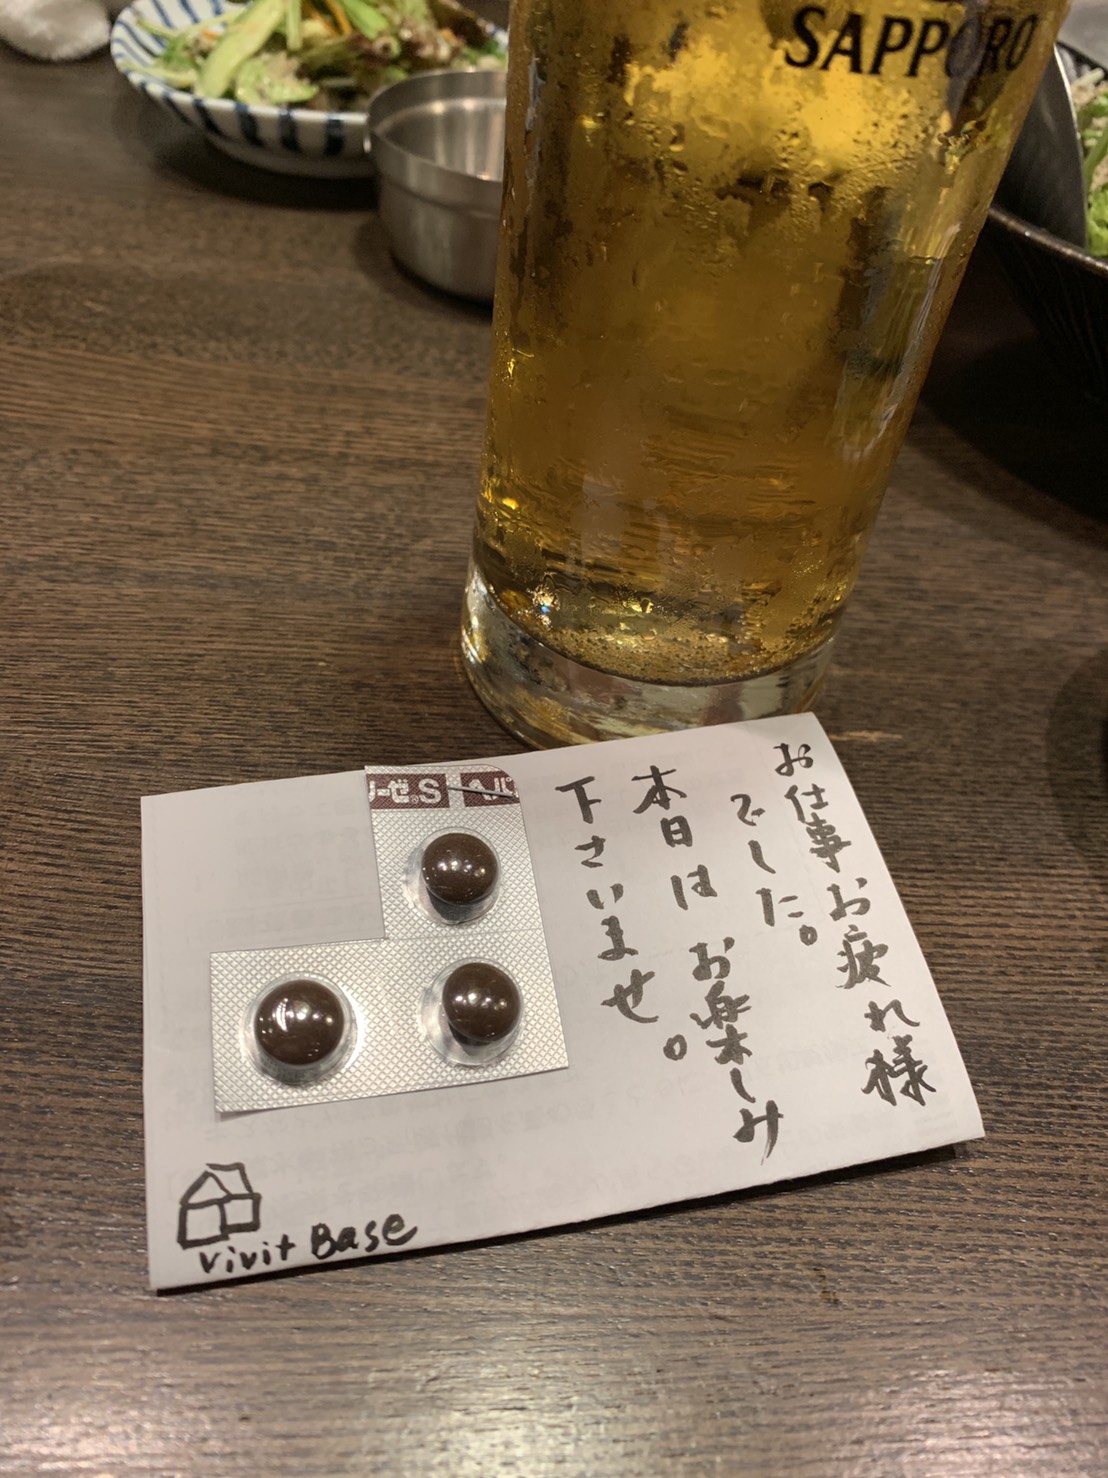 SAPPORO
ーゼ。S ヘパ
お仕事お疲れ様
でした。
本日はお楽しみ
下さいませ。
Vivit Base